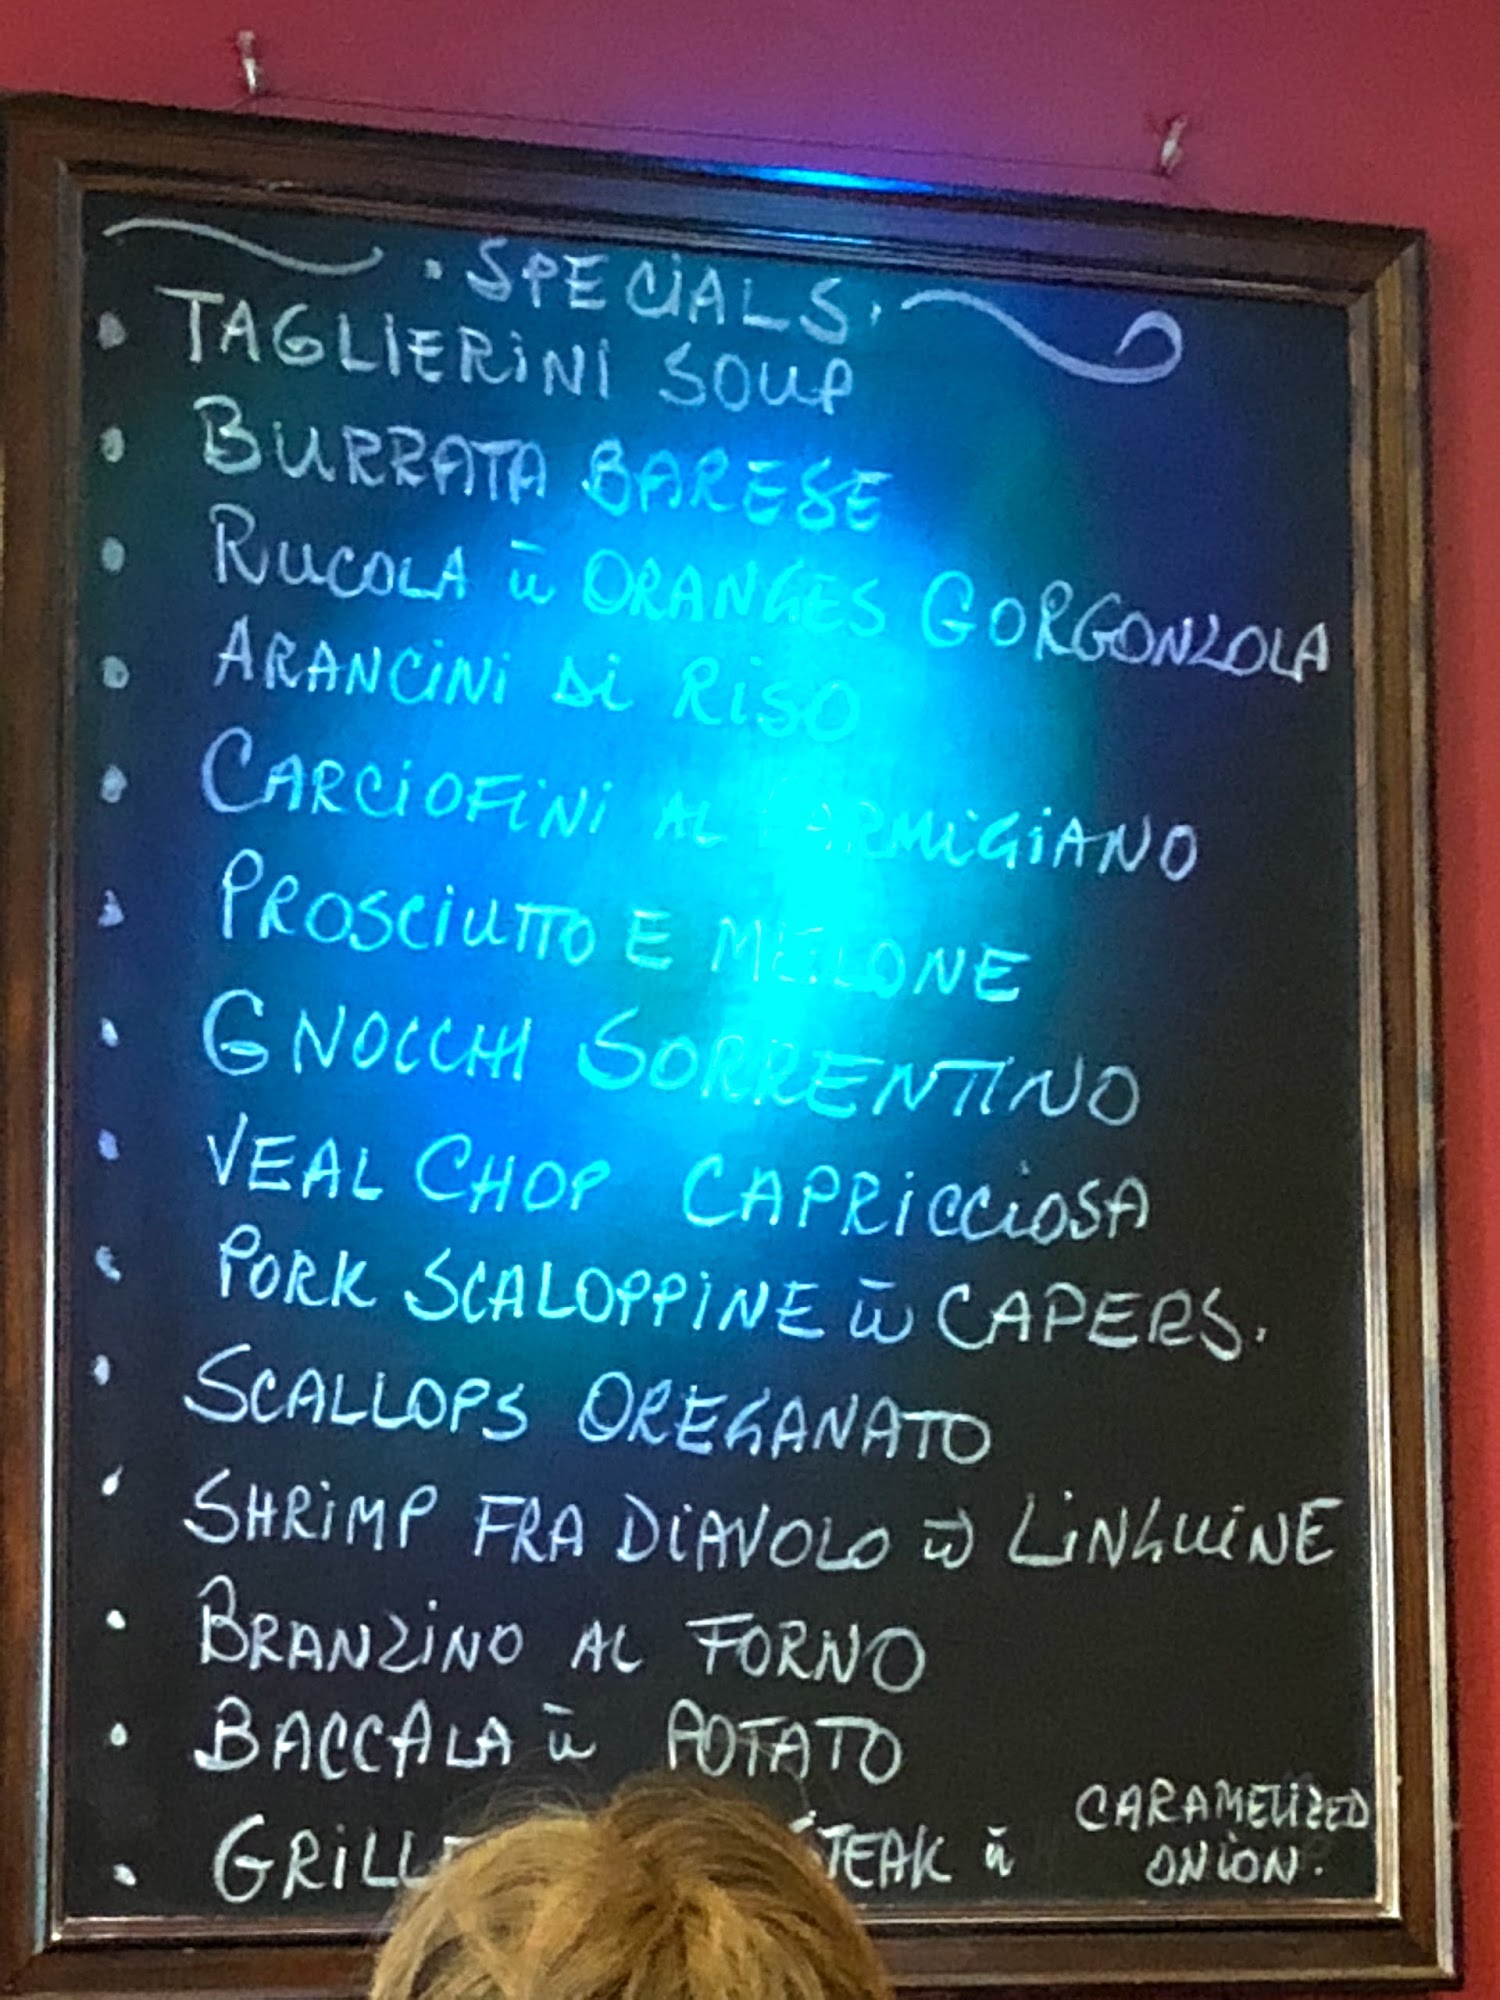 . SPECIALS.
• TAGLIERINI SOUP
• BURRATA BARESE
• RUCOLA w̄ ORANGES GORGONZOLA
• ARANCINI DI RISO
• CARCIOFINI AL PARMIGIANO
• PROSCIUTTO E MELONE
• GNOCCHI SORRENTINO
• VEAL CHOP CAPRICCIOSA
• PORK SCALOPPINE w̄ CAPERS.
• SCALLOPS OREGANATO
• SHRIMP FRA DIAVOLO w̄ LINGUINE
• BRANZINO AL FORNO
• BACCALA w̄ POTATO
• GRILL STEAK w̄ CARAMELIZED
ONION.